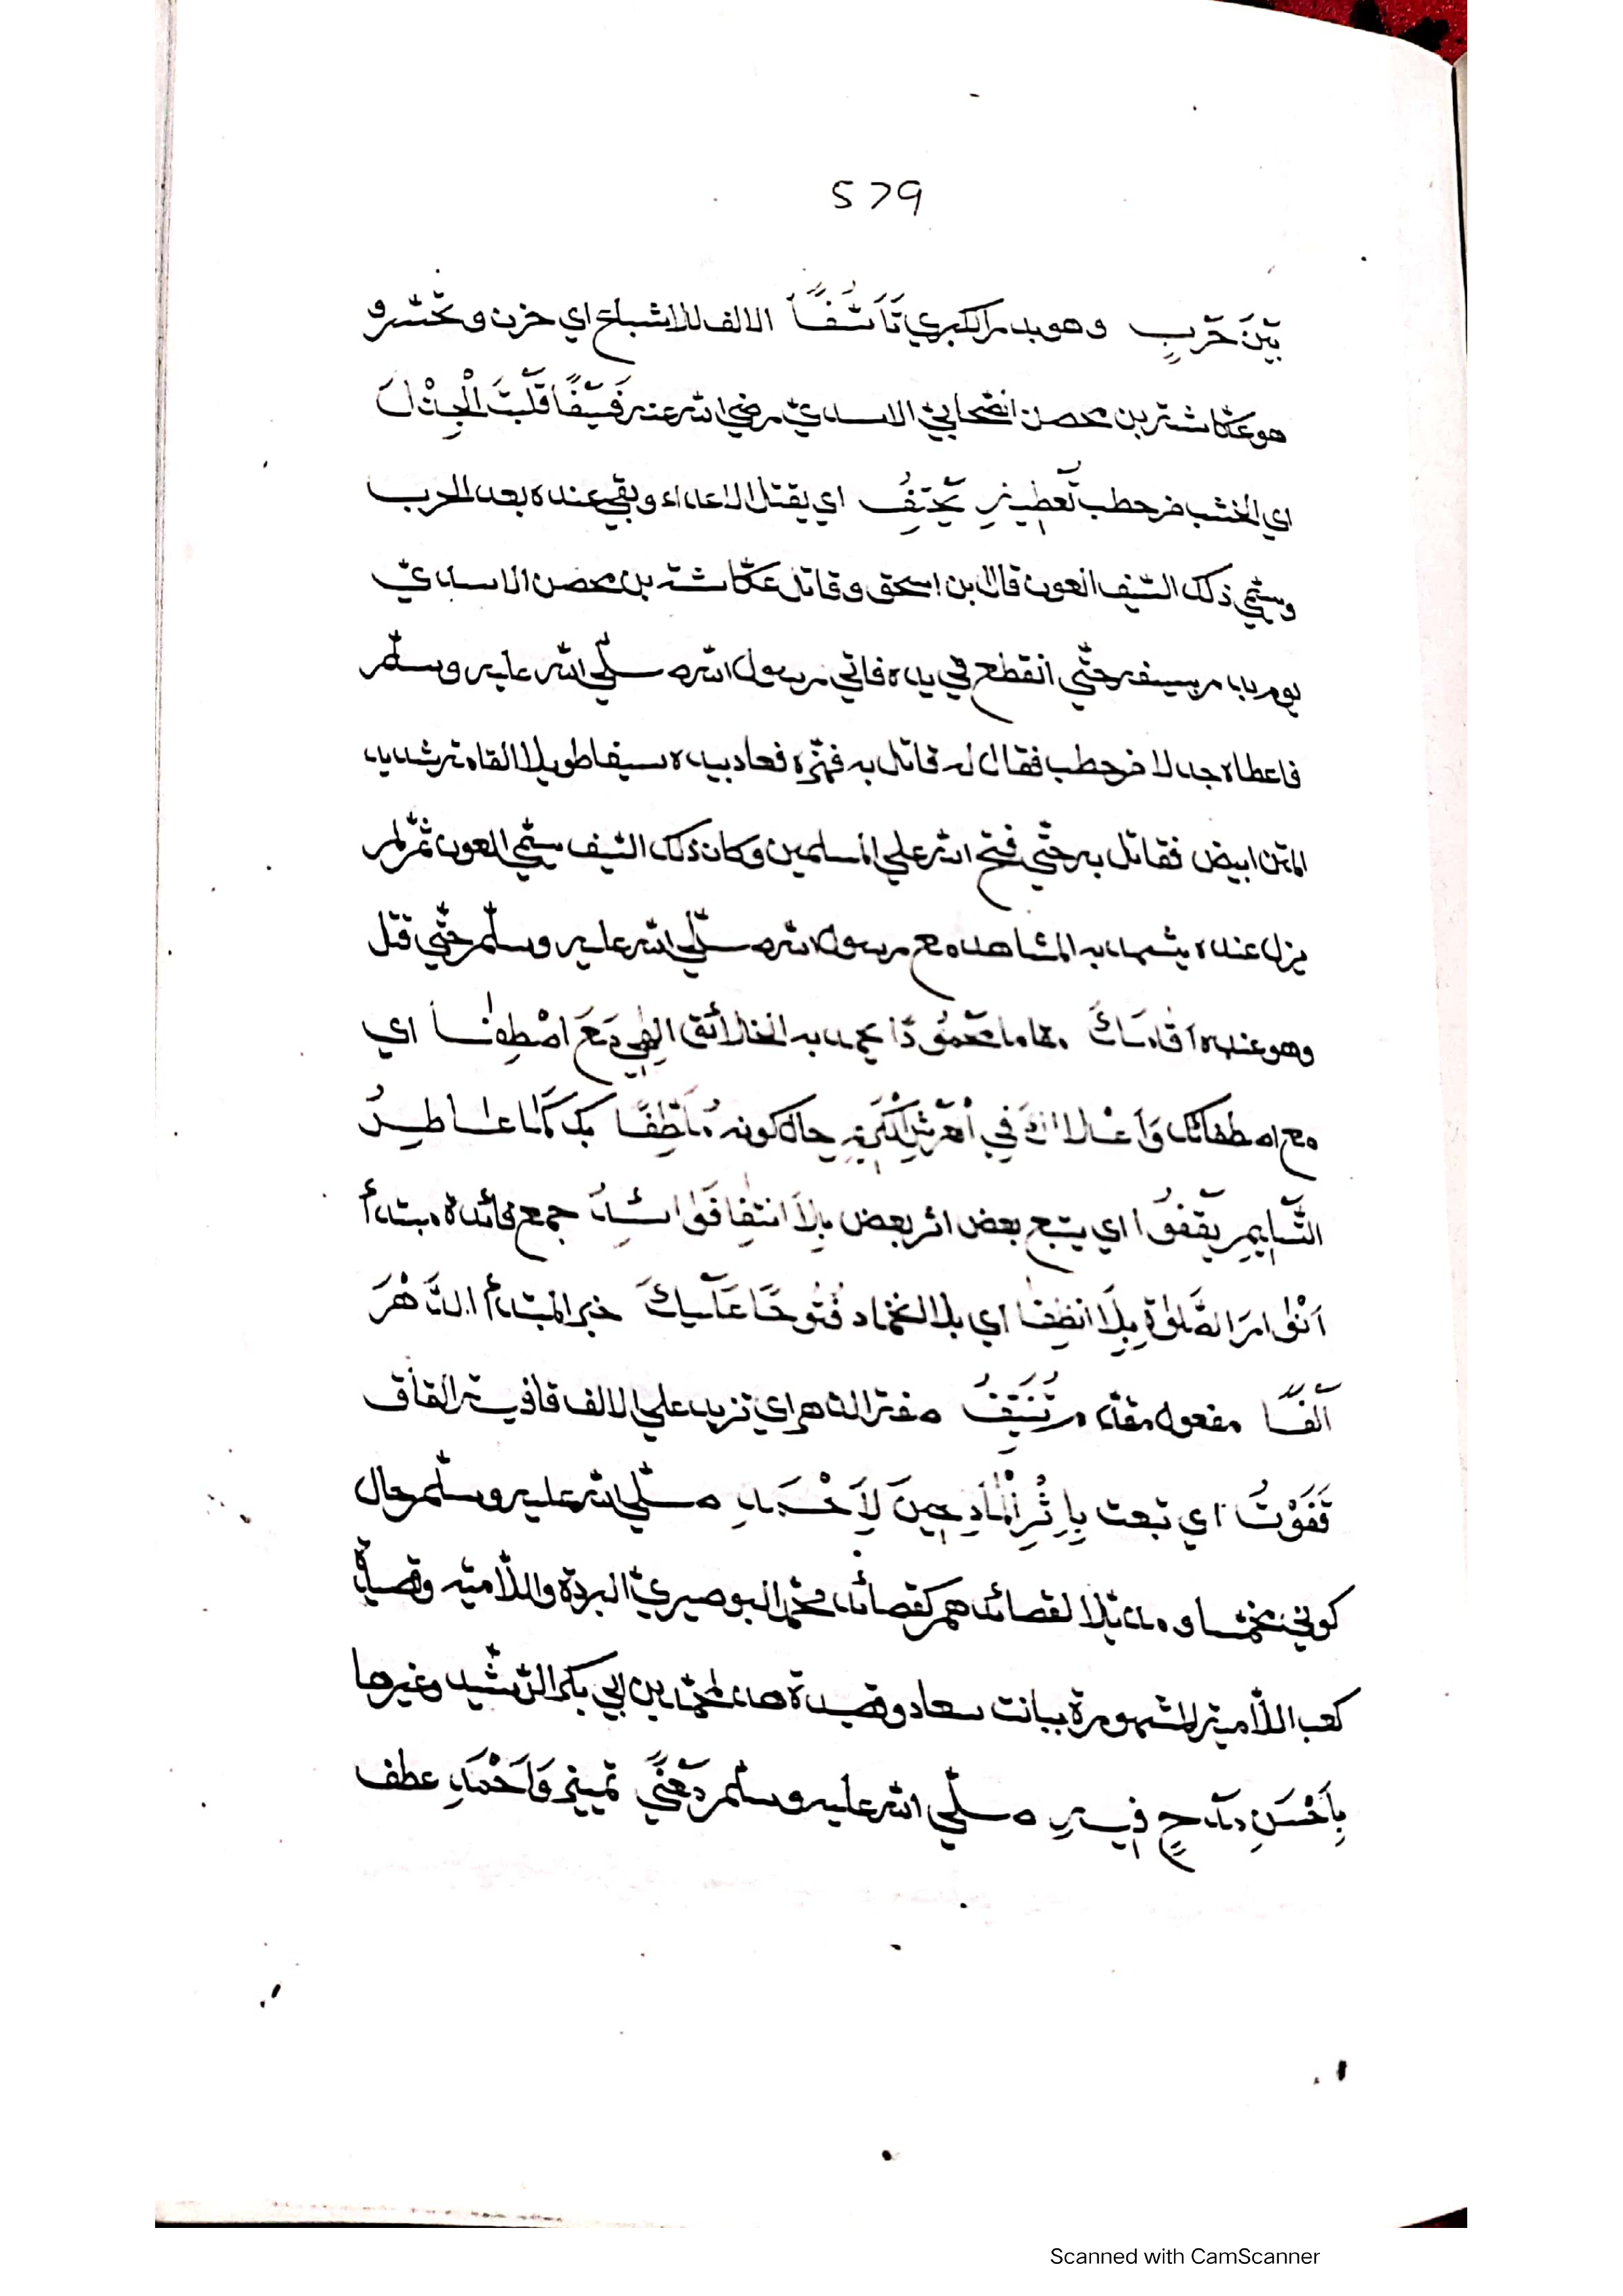 579
بَيْنَ حَرْبٍ وهو بدر الكبري تَأَسُّفًا الالف للاشباع اي حزن وتحسّر و
هو عكّاشة بن محصن الصّحابيّ الاسديّ رضي الله عنه فَسَيْفًا قَلَبْتَ الْجِذْلَ
اي الخشب من حطب تُعْطِيهِ يَحْتِفُ اي يقتل الاعداء وبقي عنده بعد الحرب
وسمّي ذلك السّيف العون قال ابن اسحق وقاتل عكّاشة بن محصن الاسديّ
يوم بدر بسيفه حتّي انقطع في يده فاتي رسول الله صلّي الله عليه وسلّم
فاعطاه جدلا من حطب فقال له قاتل به فهزّه فعاد بيده سيفا طويلا القامة شديد
المتن ابيض فقاتل به حتّي فتح الله علي المسلمين وكان ذلك السّيف يسمّي العون ثمّ لم
يزل عنده يشهد به المشاهد مع رسول الله صلّي الله عليه وسلّم حتّي قتل
وهو عنده اَقَامَكَ مقاما محمودا يحمد به الخلائق اِلٰهِي مَعَ اصْطِفٰـا اي
مع اصطفائك وَاَعْلَا فِي حال كونه مُلَطِّفًا بك عاطِرُ
التَّسْلِيمِ يَقْفُو اي يتبع بعض اثر بعض بِلاَ انْتِفَا فَوَائِدُ جمع فائدة مبتدأ
اَنْوَامَرِ الصَّلٰوةِ بِلَا انْطِفٰا اي بلا الخماد فُتُوحًا عَلَيْكَ خبر المبتدأ الدَّهْرَ
اَلْفًا مفعول مقدّم تُنَيِّفُ صفة الدّهر اي تزيد علي الالف قافية القاف
قَفَوْتُ اي تبعت بِاِثْرِ الْمَادِحِينَ لِاَحْمَدِ صلّي الله عليه وسلّم حال
كوني مخمّسا و لقصائدهم كقصائد محمّد البوصيريّ البردة واللّاميّه وقصيدة
كعب اللّاميّة المشهورة ببانت سعاد وقصيدة محمّد بن ابي بكر الرّشيد وغيرها
بِاَحْسَنِ مَدْحٍ فِيهِ صلّي الله عليه وسلّم مَعْنًي تمييز وَاَحْمَدِ عطف
Scanned with CamScanner